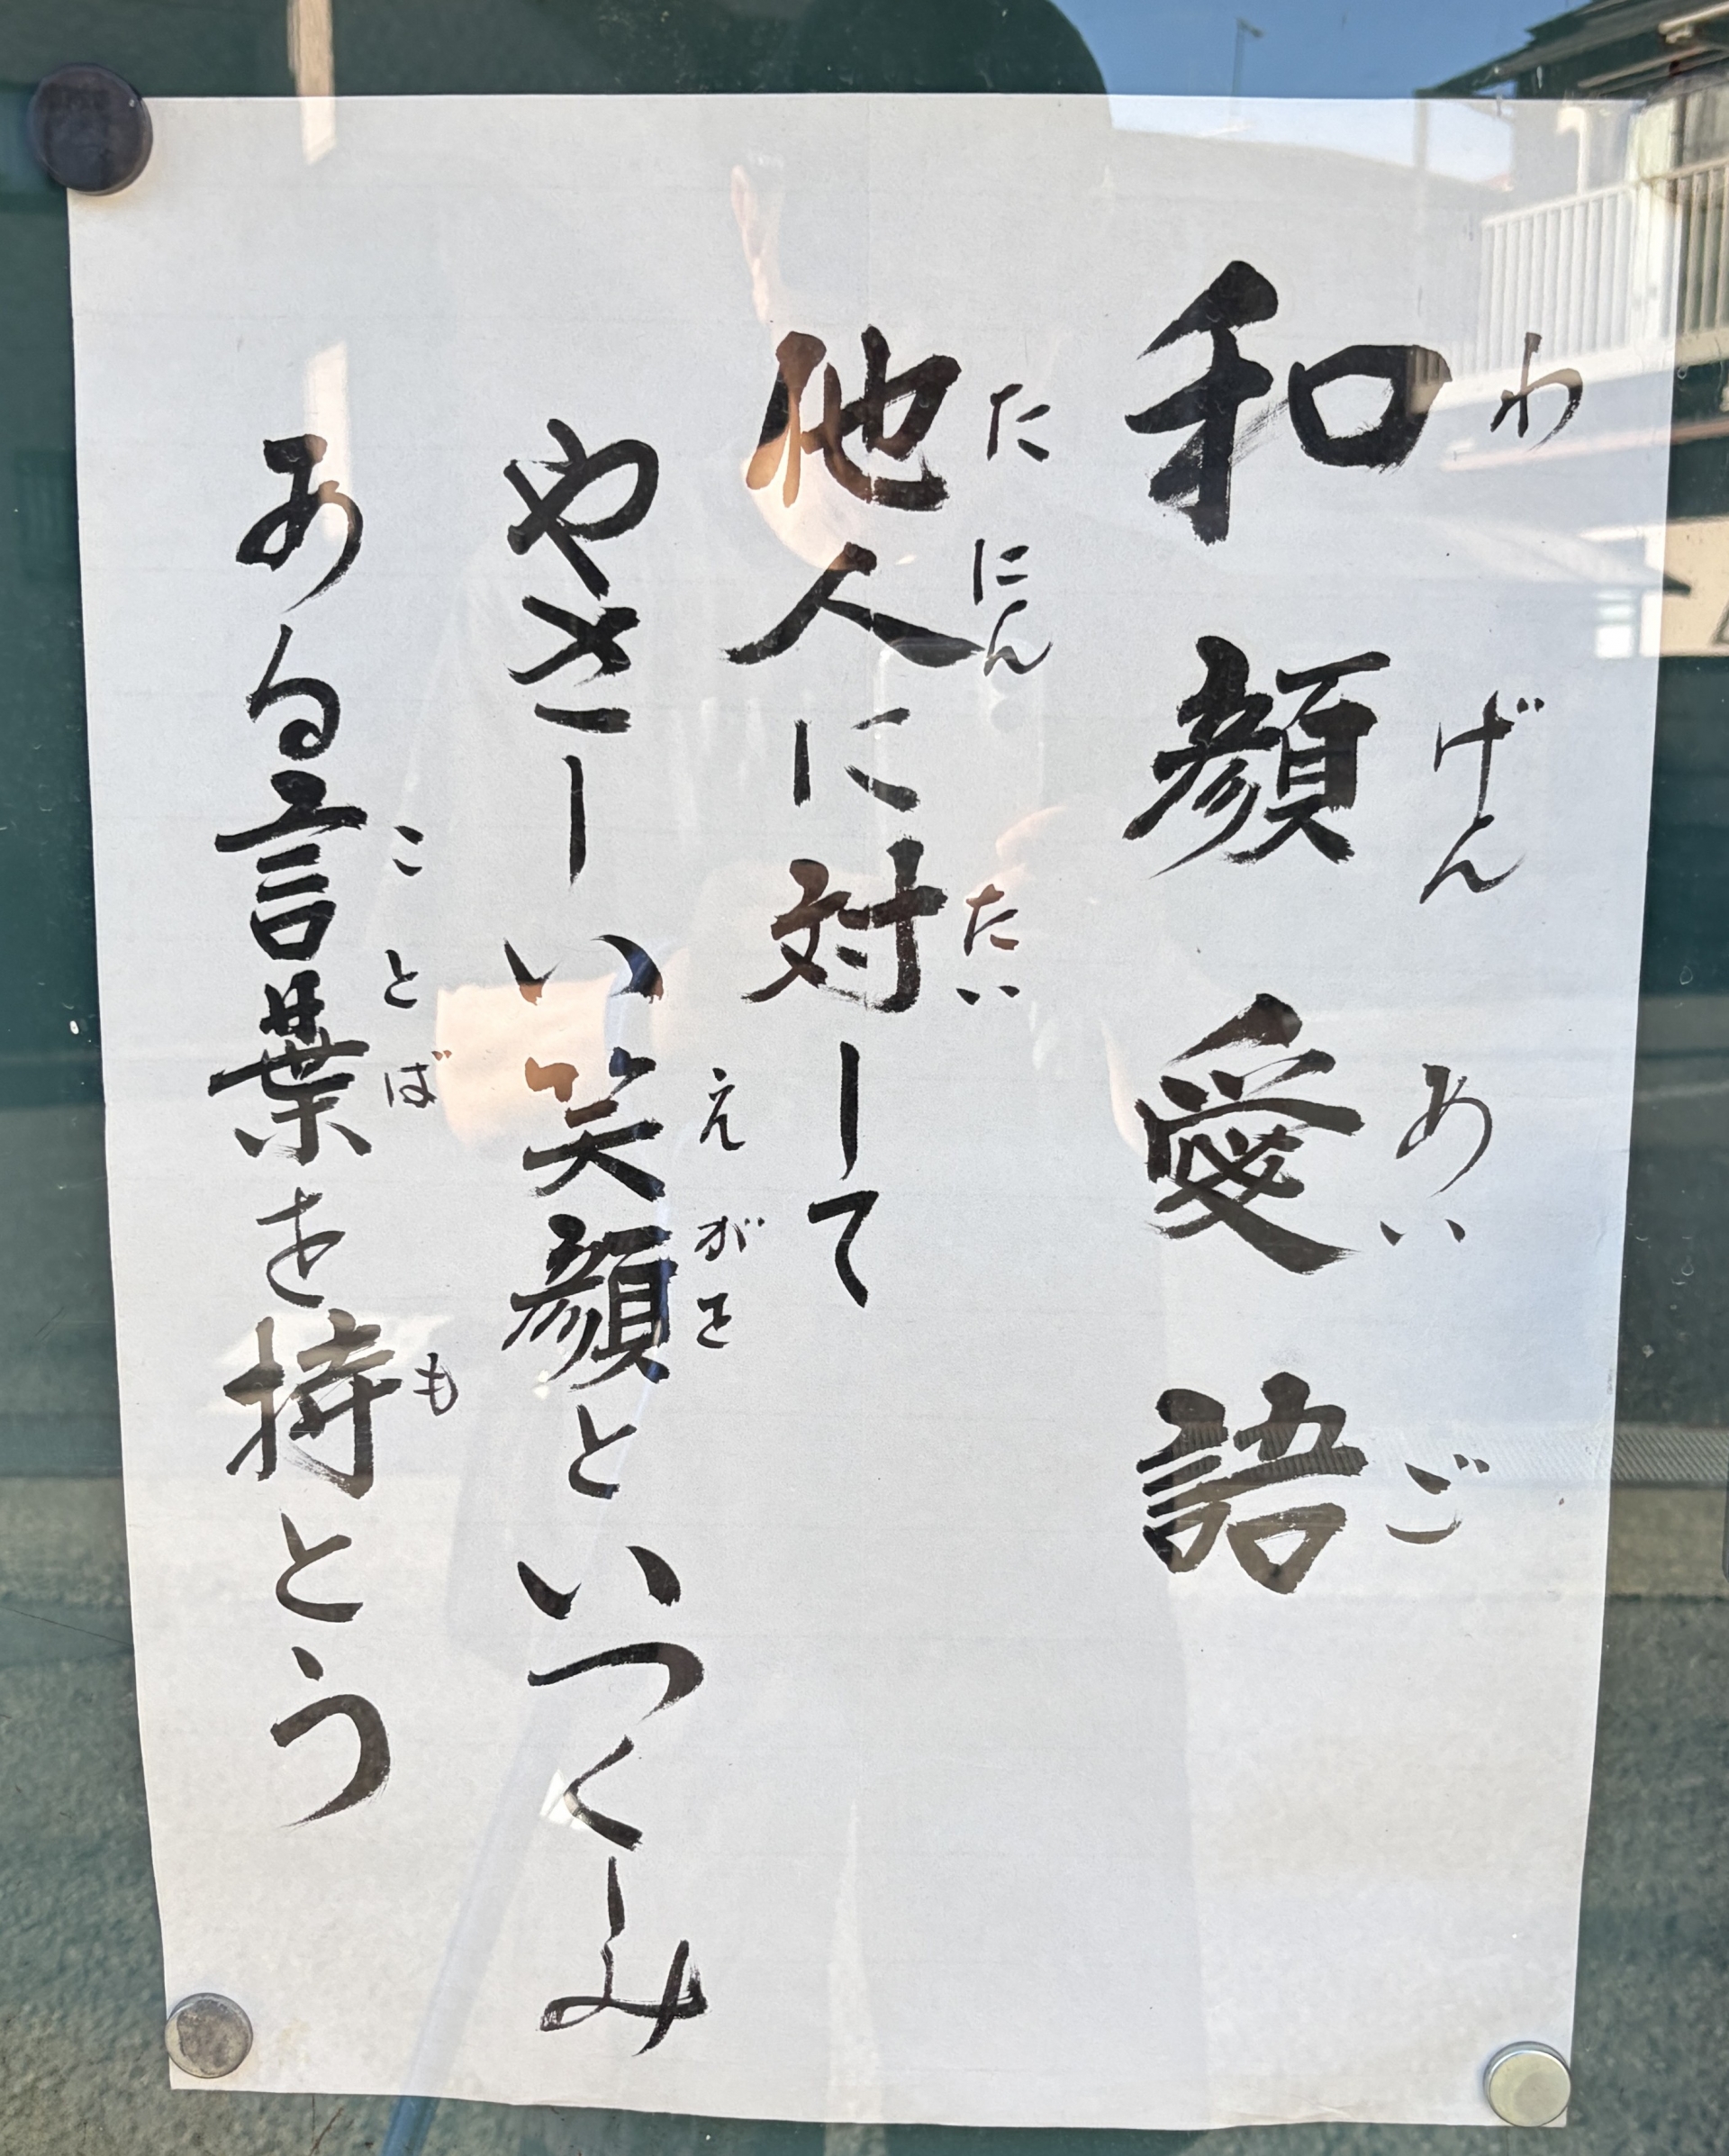 和顔愛語
わ げん あい ご
他人に対して
た にん たい
やさしい笑顔といつくしみ
え がを
ある言葉を持とう
こ と ば も